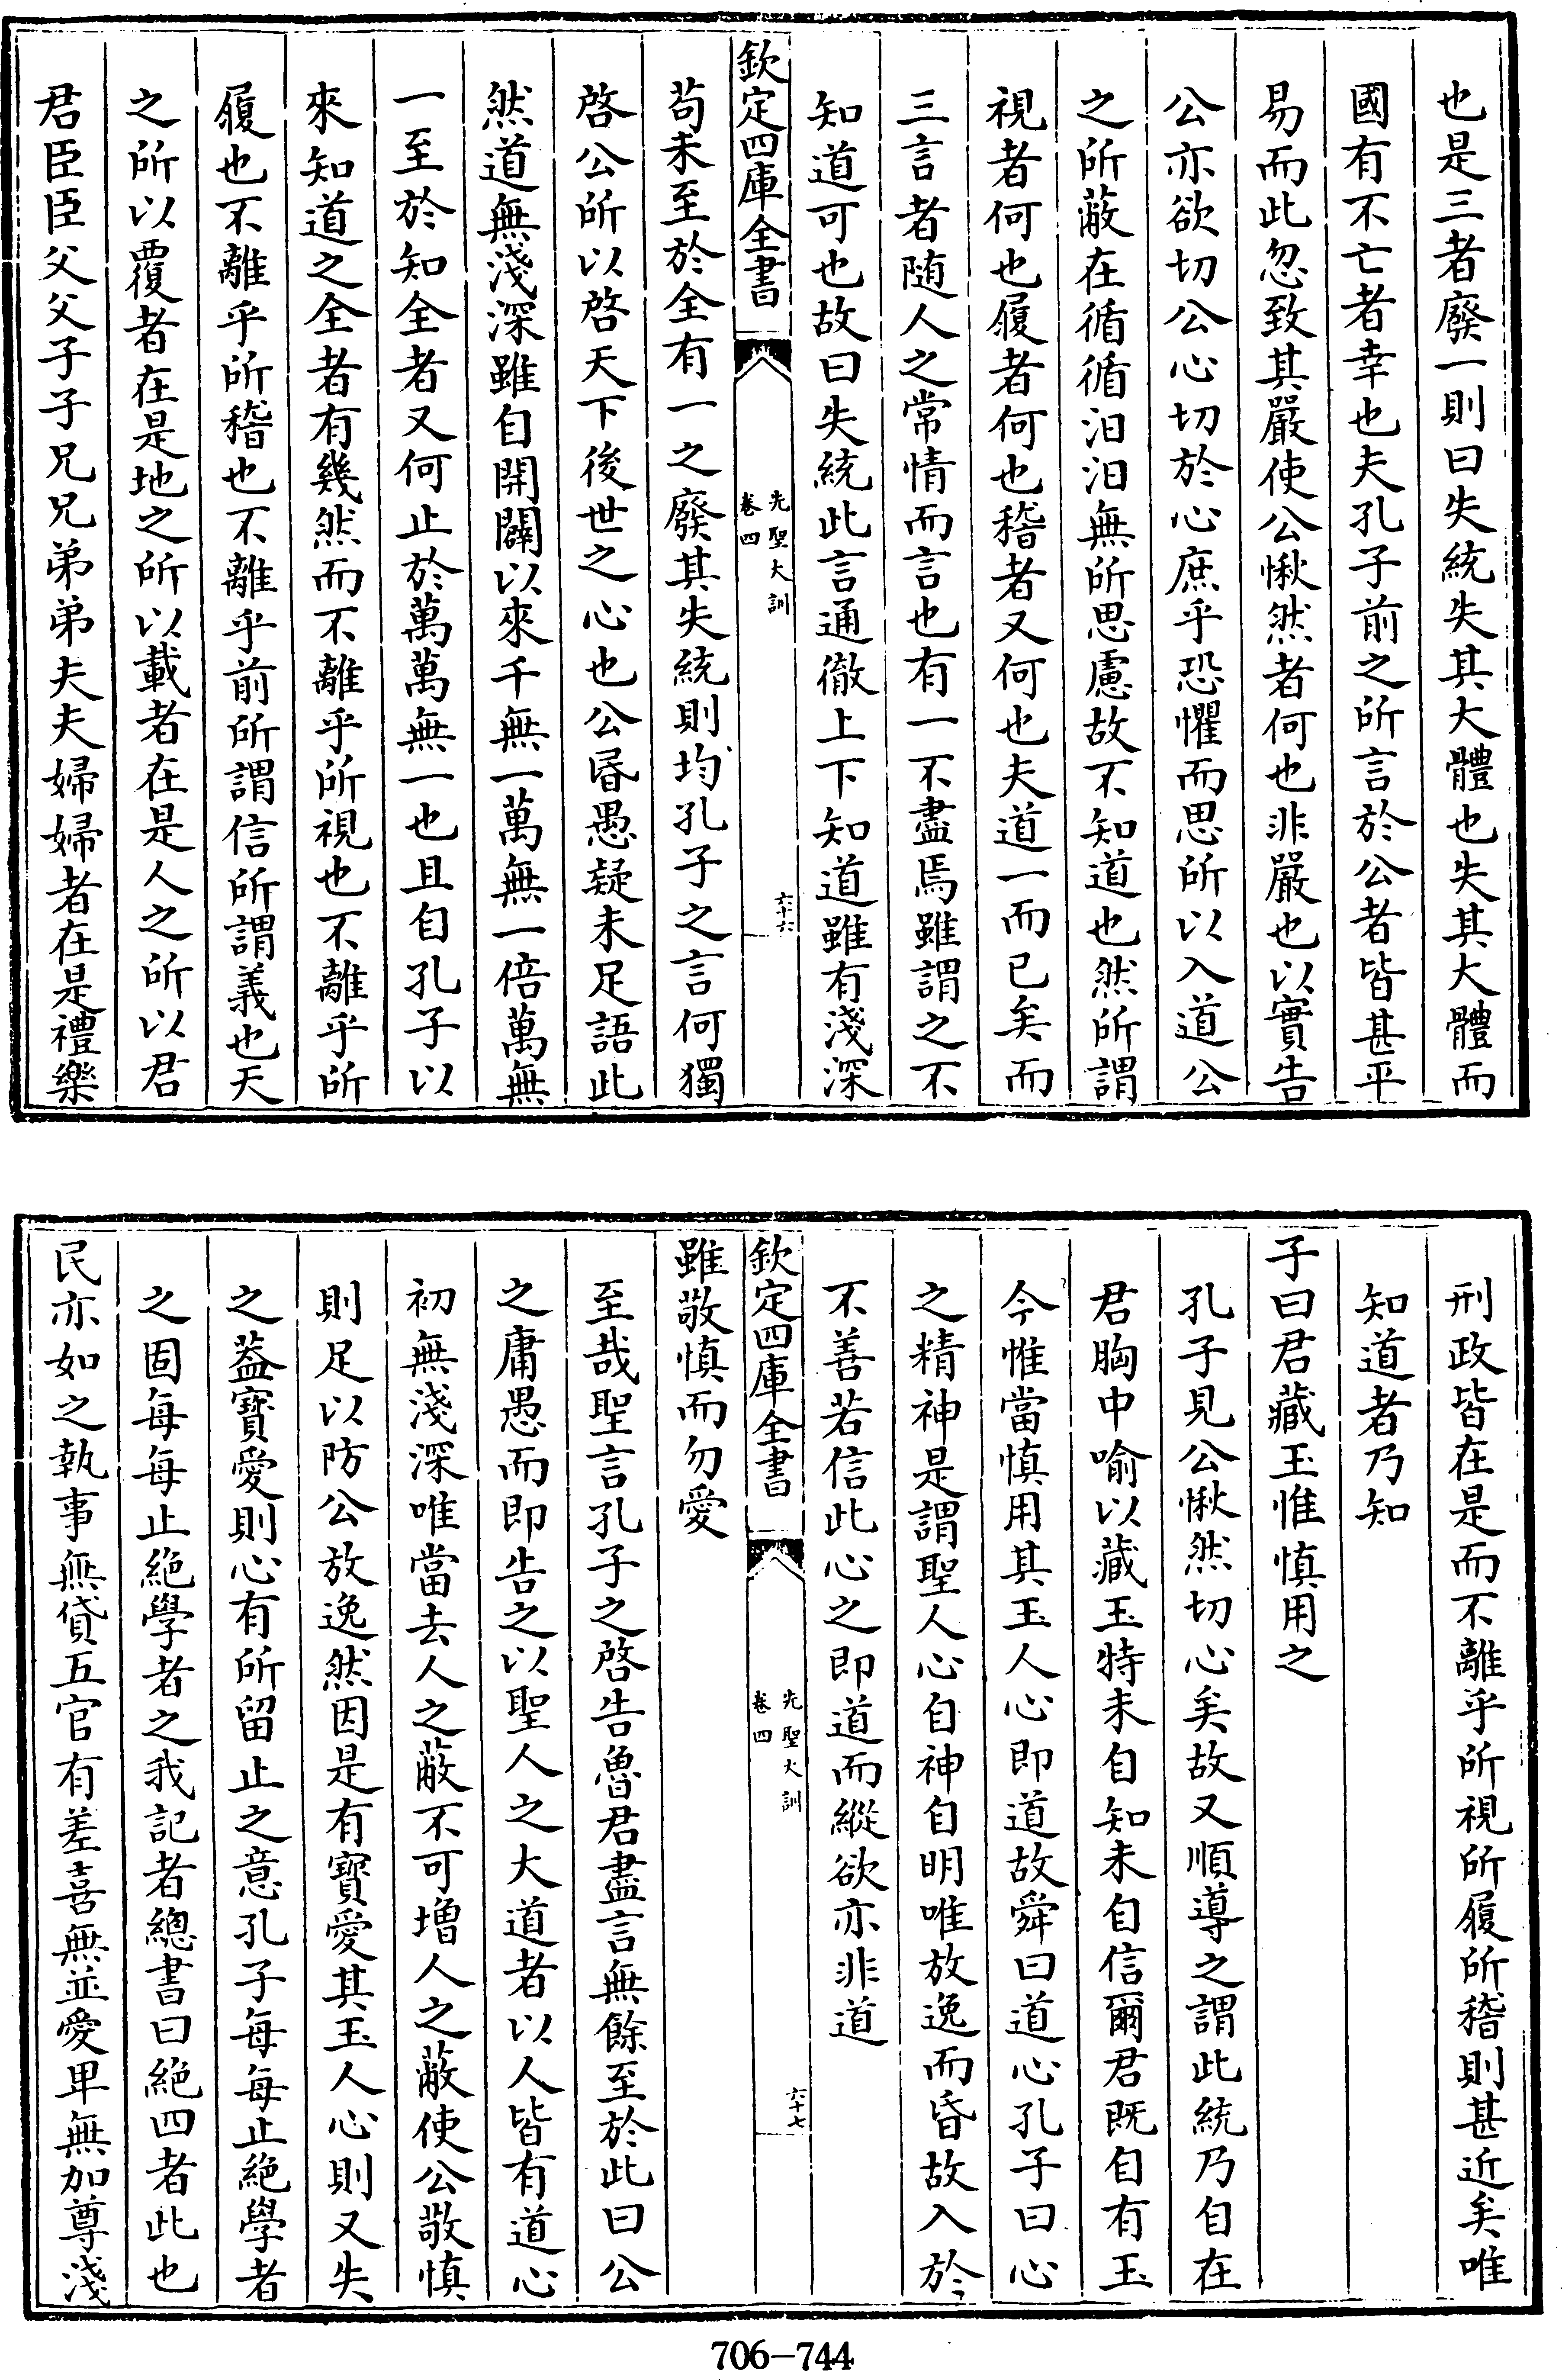 也是三者廢一則曰失統失其大體也失其大體而
國有不亡者幸也夫孔子前之所言於公者皆甚平
易而此忽致其嚴使公愀然者何也非嚴也以實告
公亦欲切公心切於心庶乎恐懼而思所以入道公
之所蔽在循循汨汨無所思慮故不知道也然所謂
視者何也履者何也稽者又何也夫道一而已矣而
三言者随人之常情而言也有一不盡焉雖謂之不
知道可也故曰失統此言通徹上下知道雖有淺深
欽定四庫全書
先聖大訓
卷四
六十六
苟未至於全有一之廢其失統則均孔子之言何獨
啓公所以啓天下後世之心也公昬愚疑未足語此
然道無淺深雖自開闢以來千無一萬無一倍萬無
一至於知全者又何止於萬萬無一也且自孔子以
來知道之全者有幾然而不離乎所視也不離乎所
履也不離乎所稽也不離乎前所謂信所謂義也天
之所以覆者在是地之所以載者在是人之所以君
君臣臣父父子子兄兄弟弟夫夫婦婦者在是禮樂
刑政皆在是而不離乎所視所履所稽則甚近矣唯
知道者乃知
子曰君藏玉惟慎用之
孔子見公愀然切心矣故又順導之謂此統乃自在
君胸中喻以藏玉特未自知未自信爾君既自有玉
今惟當慎用其玉人心即道故舜曰道心孔子曰心
之精神是謂聖人心自神自明唯放逸而昏故入於
不善若信此心之即道而縱欲亦非道
欽定四庫全書
先聖大訓
卷四
六十七
雖敬慎而勿愛
至哉聖言孔子之啓告魯君盡言無餘至於此曰公
之庸愚而即告之以聖人之大道者以人皆有道心
初無淺深唯當去人之蔽不可增人之蔽使公敬慎
則足以防公放逸然因是有寳愛其玉人心則又失
之葢寳愛則心有所留止之意孔子每每止絶學者
之固每每止絶學者之我記者總書曰絶四者此也
民亦如之執事無貸五官有差喜無並愛卑無加尊淺
706-744